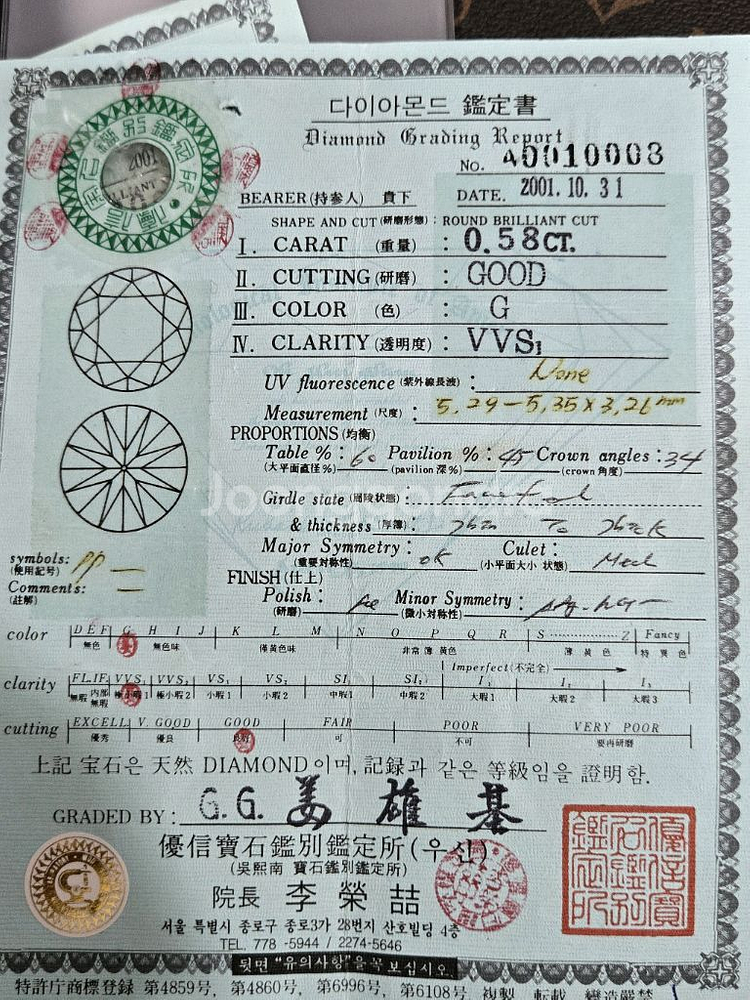 다이아몬드 鑑定書
Diamond Grading Report
No. A0010003
BEARER(持參人) 貴下 DATE. 2001. 10. 31
SHAPE AND CUT(研磨形態) : ROUND BRILLIANT CUT
I. CARAT (重量) : 0.58CT.
II. CUTTING(研磨) : GOOD
III. COLOR (色) : G
IV. CLARITY(透明度) : VVS1
UV fluorescence (紫外線長波) : None
Measurement (尺度) : 5.29-5.35x3.26mm
PROPORTIONS(均衡)
Table % : 60 Pavilion % : 45 Crown angles : 34
(大平面直径%) (pavilion 深%) (crown 角度)
Girdle state (周陵状態) : Faceted
& thickness (厚薄) : Thin To Thick
Major Symmetry : ok Culet : Med
(重要対称性) (小平面大小 状態)
FINISH(仕上)
Polish : Minor Symmetry :
(研磨) (微小対称性)
symbols: PP
(使用記号)
Comments:
(註解)
color D E F G H I J K L M N O P Q R S Z Fancy
無色 無色味 僅黄色味 非常 薄 黄色 薄 黄色 特 異 色
Imperfect(不完全)
clarity FL.IF. VVS1 VVS2 VS1 VS2 SI1 SI2 I1 I2 I3
無瑕 内部無瑕 極小瑕1 極小瑕2 小瑕1 小瑕2 中瑕1 中瑕2 大瑕1 大瑕2 大瑕3
cutting EXCELL V. GOOD GOOD FAIR POOR VERY POOR
優秀 優良 良好 可 不可 要再研磨
上記 宝石은 天然 DIAMOND이며, 記録과 같은 等級임을 證明함.
GRADED BY : G.G. 姜 雄 基
優信寶石鑑別鑑定所(우신)
(吳熙南 寶石鑑別鑑定所)
院長 李榮喆
서울 특별시 종로구 종로3가 28번지 산호빌딩 4층
TEL. 778-5944 / 2274-5646
뒷면 "유의사항"을 꼭 보십시오.
特許庁商標登録 第4859号, 第4860号, 第6996号, 第6108号 複製 転載 變造嚴禁
優信寶石鑑別鑑定所